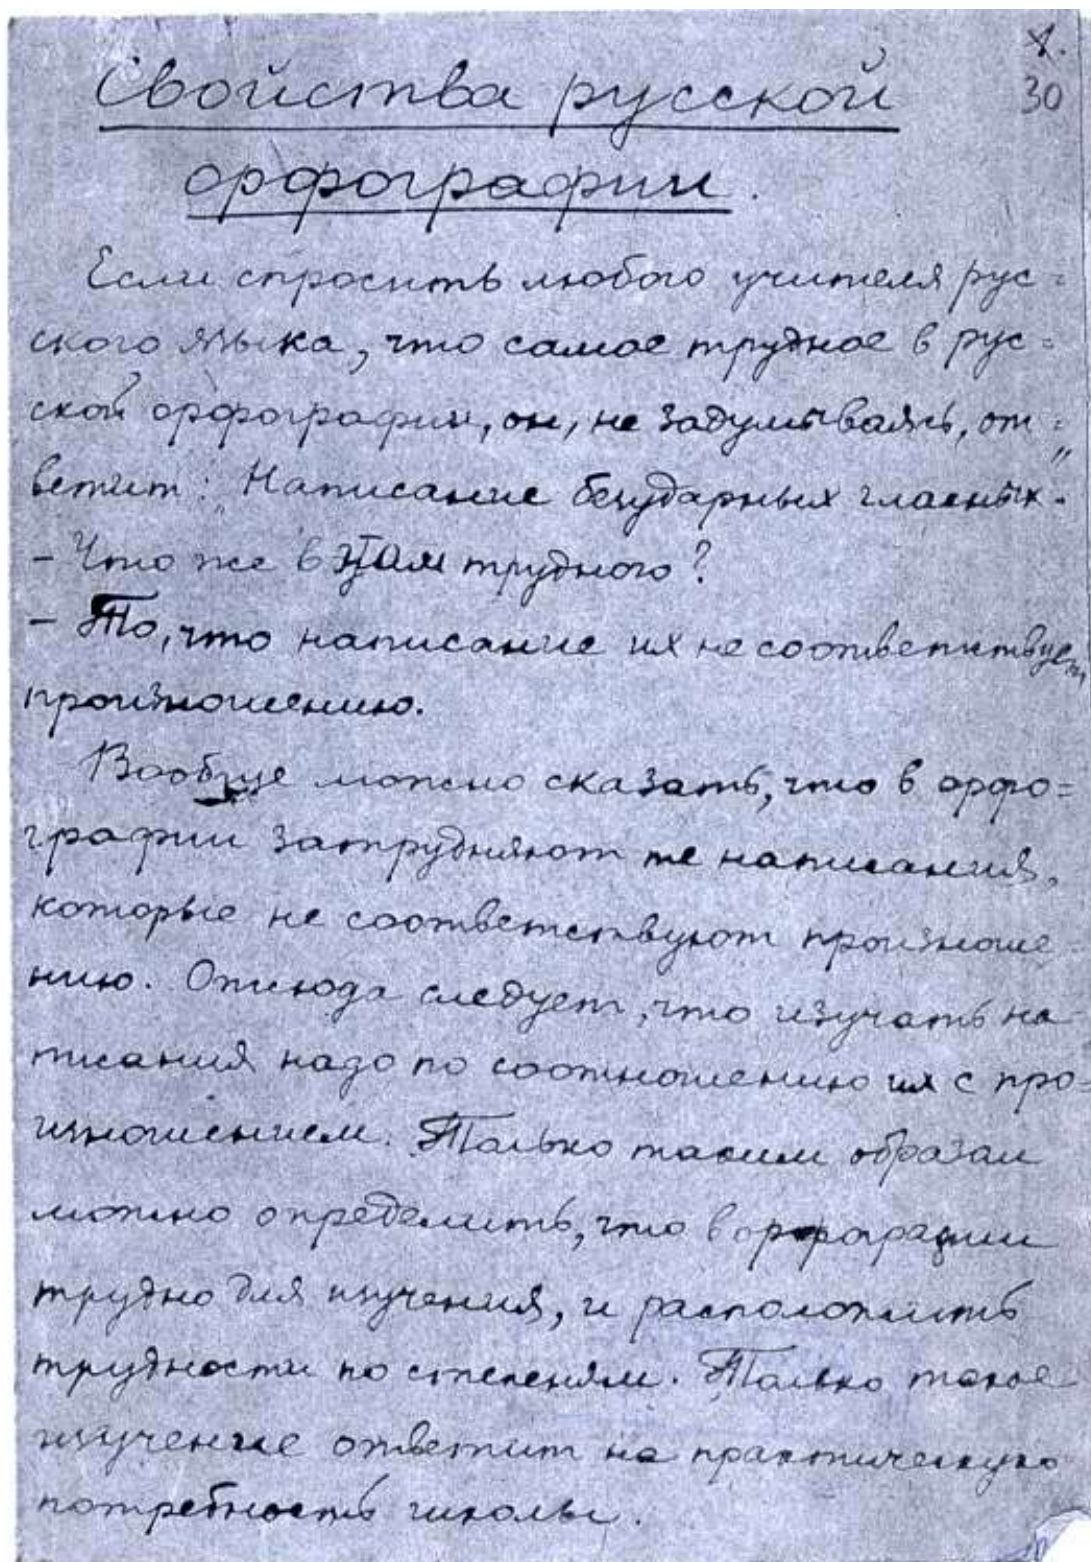 1.
30
Свойства русской
орфографии.
Если спросить любого учителя рус=
ского языка, что самое трудное в рус=
ской орфографии, он, не задумываясь, от=
ветит: „Написание безударных гласных."
– Что же в этом трудного?
– То, что написание их не соответствует
произношению.
Вообще можно сказать, что в орфо=
графии затрудняют те написания,
которые не соответствуют произноше-
нию. Отсюда следует, что изучать на-
писания надо по соотношению их с про-
изношением. Только таким образом
можно определить, что в орфографии
трудно для изучения, и расположить
трудности по степеням. Только такое
изучение ответит на практическую
потребность школы.